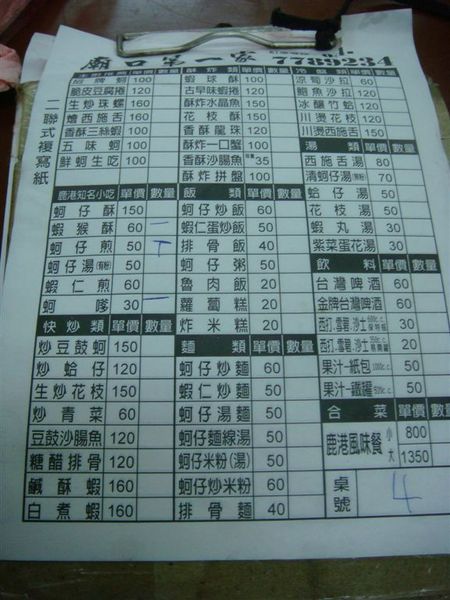 廟口第一家 7789234
二聯式複寫紙
主廚推薦 單價 數量
招牌蚵 100
脆皮豆腐捲 120
生炒珠螺 160
燴西施舌 160
香酥三絲蝦 100
五味蚵 100
鮮蚵生吃 100
鹿港知名小吃 單價 數量
蚵仔酥 150
蝦猴酥 60 一
蚵仔煎 50 T
蚵仔湯(有粉) 50
蝦仁煎 60
蚵嗲 30 一
快炒類 單價 數量
炒豆鼓蚵 150
炒蛤仔 120
生炒花枝 150
炒青菜 60
豆鼓沙腸魚 120
糖醋排骨 120
鹹酥蝦 160
白煮蝦 160
酥炸類 單價 數量
蝦球酥 100
古早味蝦捲 120
酥炸水晶魚 150
花枝酥 150
香酥龍珠 120
酥炸一口蟹 100
香酥沙腸魚 35
酥炸拼盤 100
飯類 單價 數量
蚵仔炒飯 60
蝦仁蛋炒飯 50
排骨飯 40
蚵仔粥 50
魯肉飯 20
蘿蔔糕 20
炸米糕 20
麵類 單價 數量
蚵仔炒麵 60
蝦仁炒麵 50
蚵仔湯麵 50
蚵仔麵線湯 50
蚵仔米粉(湯) 50
蚵仔炒米粉 60
排骨麵 40
冷盤類 單價 數量
涼筍沙拉 60
鮑魚沙拉 120
冰釀竹蛤 120
川燙花枝 120
川燙西施舌 150
湯類 單價 數量
西施舌湯 80
清蚵仔湯(無粉) 70
蛤仔湯 50
花枝湯 50
蝦丸湯 30
紫菜蛋花湯 30
飲料 單價 數量
台灣啤酒 60
金牌台灣啤酒 60
西打.雪碧.沙士 600c.c.保特瓶 30
西打.雪碧.沙士 20
果汁-紙包 50
果汁-鐵罐 50
合菜 單價 數量
鹿港風味餐 小 800
大 1350
桌號 4